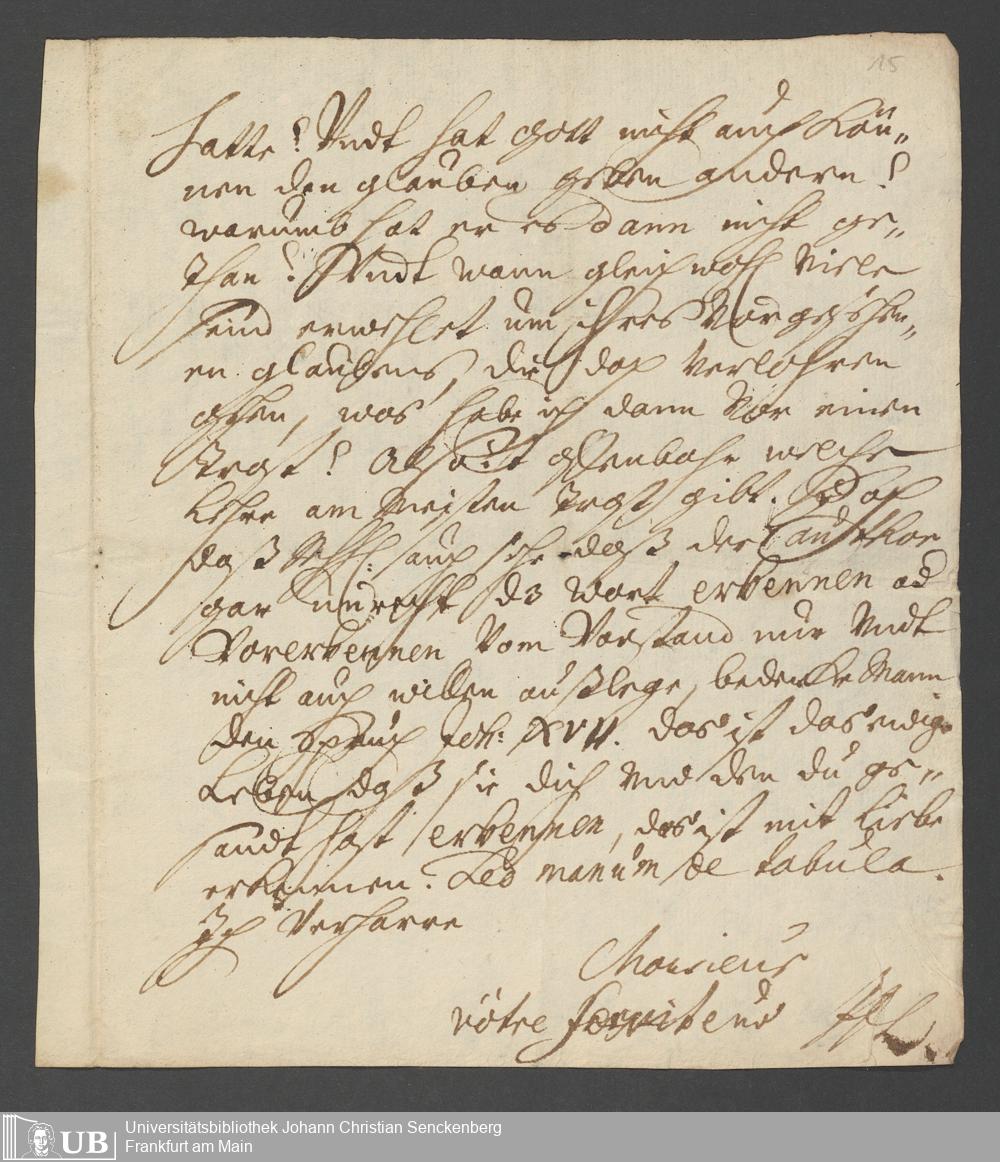 15
hatte? Vndt hat Gott nicht auch kön„
nen den glauben geben andern?
warumb hat er es dann nicht ge„
than? Vndt wann gleichwohl Viele
seind erwehlet um ihres Vorgesehen„
en glaubens, die doch verlohren
gehen, was habe ich dann Vor einen
trost? Also ist offenbahr welche
Lehre am Meisten trost gibt.
daß auch sehe daß der author
gar unrecht dz wort erkennen od
Vorerkennen Vom Verstand nur Vndt
nicht auch willen außlege, bedencke Mann
den Spruch Joh: XVII. das ist das ewige
Leben daß sie dich Vnd den du ge„
sandt hast erkennen, das ist mit Liebe
erkennen. Sed manum de tabula.
Ich Verharre
Monsieur
vôtre serviteur
UB
Universitätsbibliothek Johann Christian Senckenberg
Frankfurt am Main